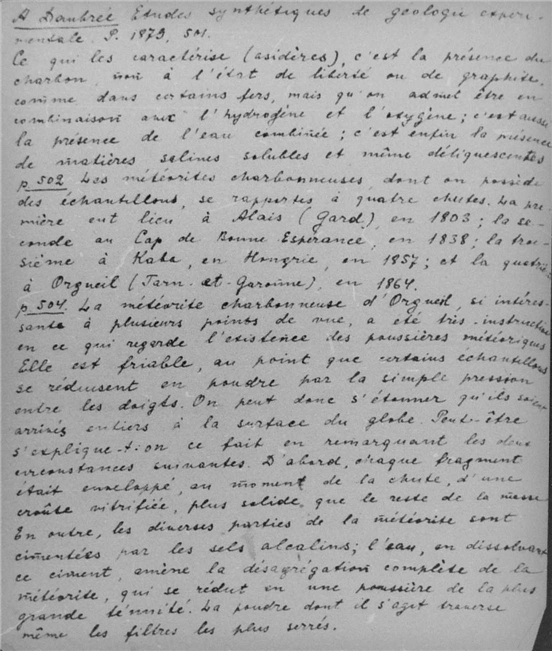 A Daubrée Etudes synthétiques de geologie experi-
mentale. P. 1879, 501.
Ce qui les caractérise (asidères), c'est la présence du
charbon, non à l'état de liberté ou de graphite,
comme dans certains fers, mais qu'on admet être en
combinaison avec l'hydrogène et l'oxygène; c'est aussi
la présence de l'eau combinée; c'est enfin la présence
de matières salines solubles et même déliquescentes
p. 502 Les météorites charbonneuses, dont on possède
des échantillons, se rapportes à quatre chutes. La pre-
mière eut lieu à Alais (Gard), en 1803; la se-
conde au Cap de Bonne Esperance, en 1838; la troi-
sième à Kaba, en Hongrie, en 1857; et la quatriè
à Orgueil (Tarn-et-Garonne), en 1864.
p. 504. La météorite charbonneuse d'Orgueil, si intéres-
sante à plusieurs points de vue, a été très-instructive
en ce qui regarde l'existence des poussières météoriques
Elle est friable, au point que certains échantillons
se réduisent en poudre par la simple pression
entre les doigts. On peut donc s'étonner qu'ils soient
arrivés entiers à la surface du globe. Peut-être
s'explique-t-on ce fait en remarquant les deux
circonstances suivantes. D'abord, chaque fragment
était enveloppé, au moment de la chute, d'une
croûte vitrifiée, plus solide que le reste de la masse
En outre, les diverses parties de la météorite sont
cimentées par les sels alcalins; l'eau, en dissolvant
ce ciment, amène la désagrégation complète de la
météorite, qui se réduit en une poussière de la plus
grande ténuité. La poudre dont il s'agit traverse
même les filtres les plus serrés.